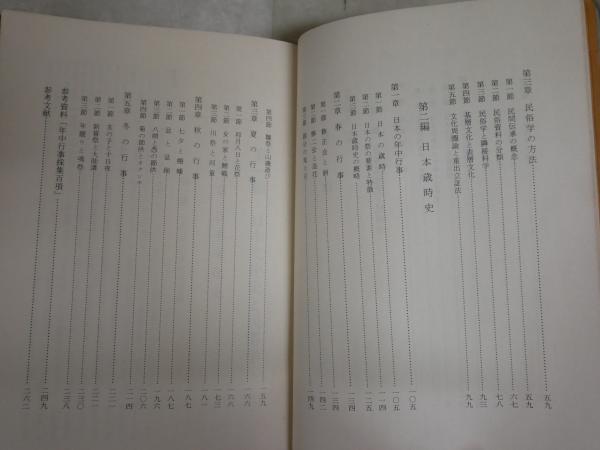 第三章 民俗学の方法 五九
第一節 民間伝承の概念 五九
第二節 民俗資料の分類 六七
第三節 民俗学と隣接科学 七八
第四節 基層文化と表層文化 九三
第五節 文化周圏論と重出立証法 九九
第二編 日本歳時史 一〇五
第一章 日本の年中行事 一〇五
第一節 日本の歳時 一一四
第二節 日本の祭の要素と特徴 一二五
第三節 日本歳時史の概略 一三四
第二章 春の行事 一三四
第一節 修正会と餅 一四二
第二節 修二会と造花 一四九
第三節
第四節 一五九
第三章 夏の行事 一六六
第一節 卯月八日と花祭 一六六
第二節 女の家と 一七三
第三節 川祭と河童 一八一
第四章 秋の行事 一八七
第一節 七夕と 一八七
第二節 盆と 一九六
第三節 八朔と 二〇六
第四節 菊の節供と 二一四
第五章 冬の行事 二二一
第一節 亥の子と十日夜 二二一
第二節 新嘗祭と大師講 二三〇
第三節 年籠りと魂祭 二三八
参考資料「年中行事採集百項」 二四九
参考文献 二六二